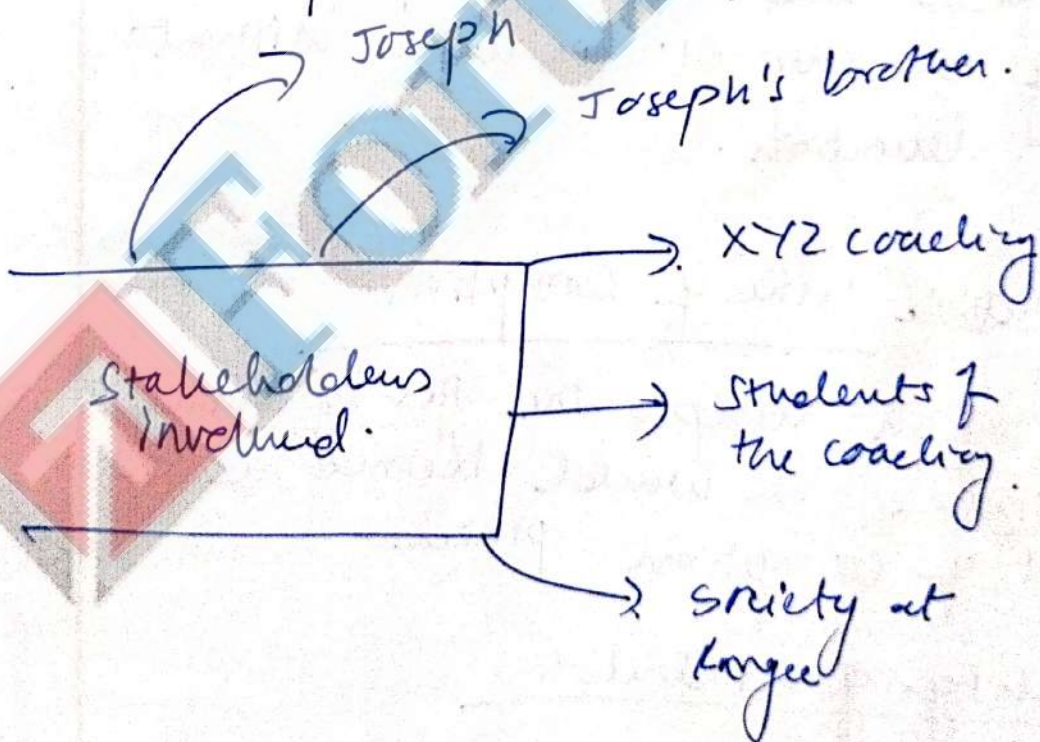 Joseph
Joseph's brother.
XYZ coaching
Stakeholders
involved.
students of
the coaching.
society at
large